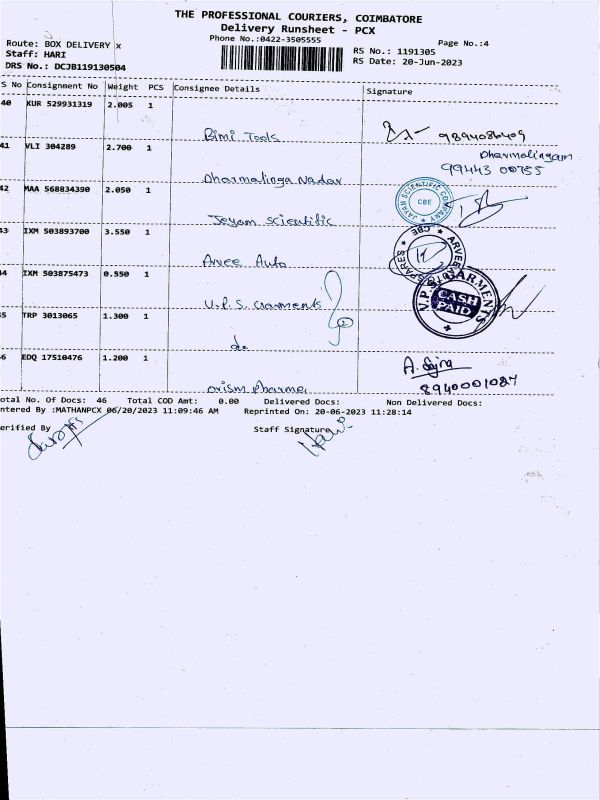 THE PROFESSIONAL COURIERS, COIMBATORE
Delivery Runsheet - PCX
Phone No.:0422-3505555
Page No.:4
Route: BOX DELIVERY x
Staff: HARI
DRS No.: DCJB119130504
RS No.: 1191305
RS Date: 20-Jun-2023
S No Consignment No Weight PCS Consignee Details Signature
40 KUR 529931319 2.005 1
Bimi Tools 9894086409
41 VLI 304289 2.700 1 Dharmalingam
Dharmalinga Nadar 99443 00755
42 MAA 568834390 2.050 1
JAYAM SCIENTIFIC COMPANY CBE
Jeyam Scientific
43 IXM 503893700 3.550 1
Arvee Auto
ARVEE SPARES CBE
44 IXM 503875473 0.550 1
U.P.S. Garments 2
V.P.S. GARMENTS CASH PAID
45 TRP 3013065 1.300 1
do
46 EDQ 17510476 1.200 1
orism pharma 8940001087
otal No. Of Docs: 46 Total COD Amt: 0.00 Delivered Docs: Non Delivered Docs:
ntered By :MATHANPCX 06/20/2023 11:09:46 AM Reprinted On: 20-06-2023 11:28:14
erified By Staff Signature
Hari